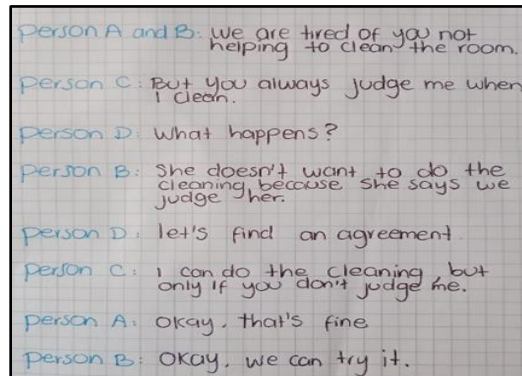 Person A and B: We are tired of you not
helping to clean the room.
Person C: But you always judge me when
I clean.
Person D: What happens?
Person B: She doesn't want to do the
cleaning, because she says we
judge her.
Person D: let's find an agreement.
Person C: I can do the cleaning, but
only if you don't judge me.
Person A: Okay, that's fine
Person B: Okay, we can try it.